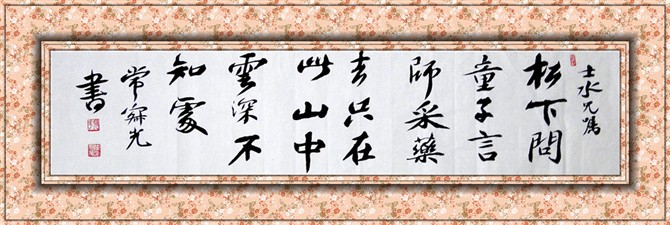 士水兄嘱
松下問
童子言
師采藥
去只在
此山中
雲深不
知處
常 光
書